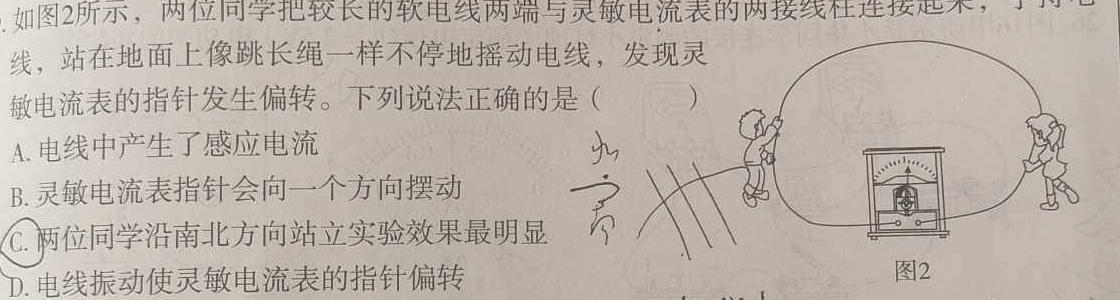 .如图2所示，两位同学把较长的软电线两端与灵敏电流表的两接线柱连接起来，手持电
线，站在地面上像跳长绳一样不停地摇动电线，发现灵
敏电流表的指针发生偏转。下列说法正确的是（　　）
A.电线中产生了感应电流
B.灵敏电流表指针会向一个方向摆动
C.两位同学沿南北方向站立实验效果最明显
D.电线振动使灵敏电流表的指针偏转
图2